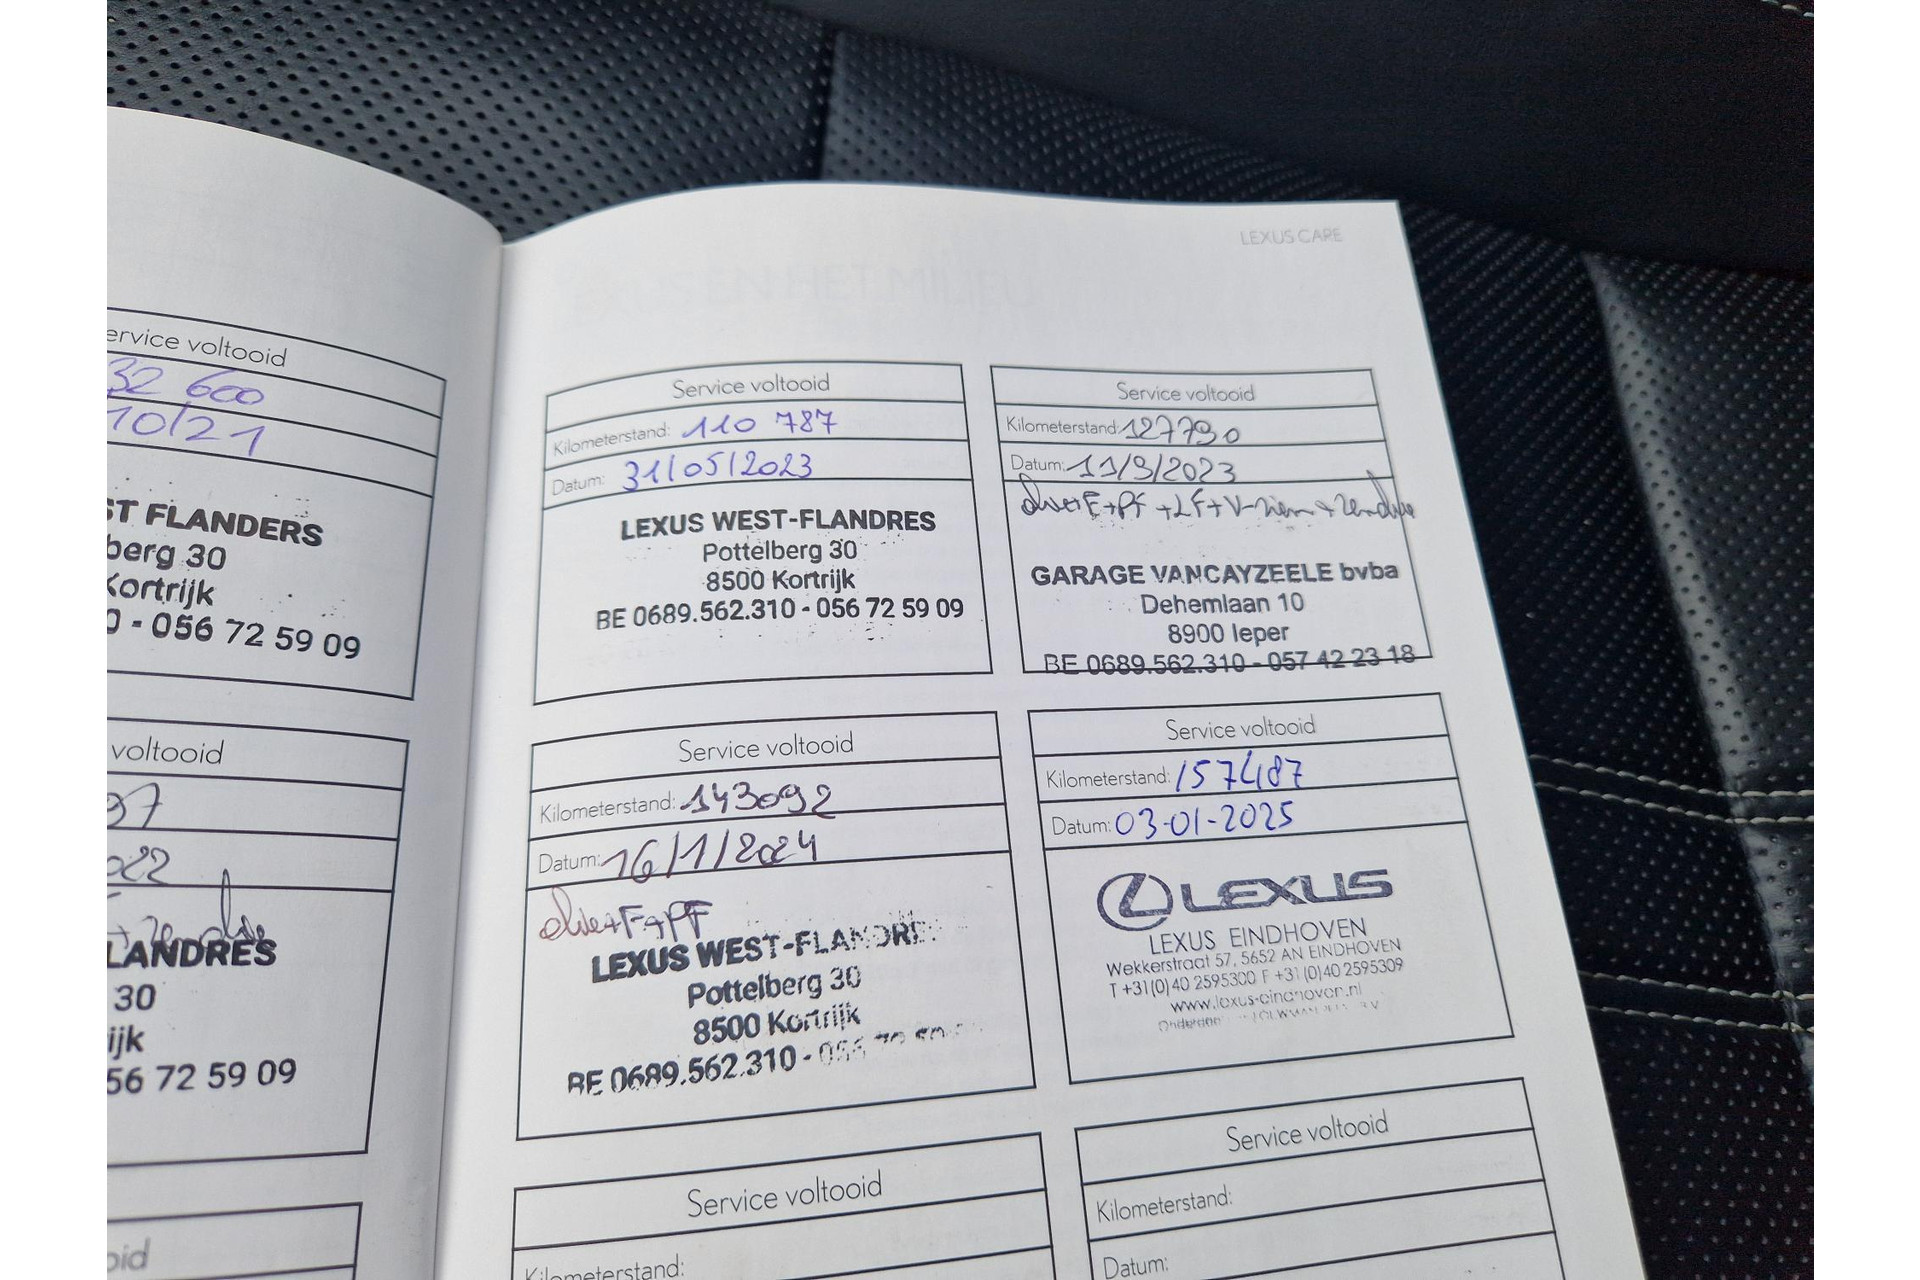 ervice voltooid
32 600
10/21
ST FLANDERS
berg 30
Kortrijk
0 - 056 72 59 09
voltooid
97
022
LANDRES
30
ijk
56 72 59 09
oid
LEXUS CARE
EN HET MILIEU
Service voltooid
Kilometerstand: 110 787
Datum: 31/05/2023
LEXUS WEST-FLANDRES
Pottelberg 30
8500 Kortrijk
BE 0689.562.310 - 056 72 59 09
Service voltooid
Kilometerstand: 127790
Datum: 11/9/2023
+PF +LF+V-riem+
GARAGE VANCAYZEELE bvba
Dehemlaan 10
8900 Ieper
BE 0689.562.310 - 057 42 23 18
Service voltooid
Kilometerstand: 143092
Datum: 16/1/2024
olie+F+PF
LEXUS WEST-FLANDRE
Pottelberg 30
8500 Kortrijk
BE 0689.562.310 - 056 72 59
Service voltooid
Kilometerstand: 157487
Datum: 03-01-2025
LEXUS
LEXUS EINDHOVEN
Wekkerstraat 57, 5652 AN EINDHOVEN
T +31(0)40 2595300 F +31(0)40 2595309
www.lexus-eindhoven.nl
Service voltooid
Kilometerstand:
Service voltooid
Kilometerstand:
Datum: